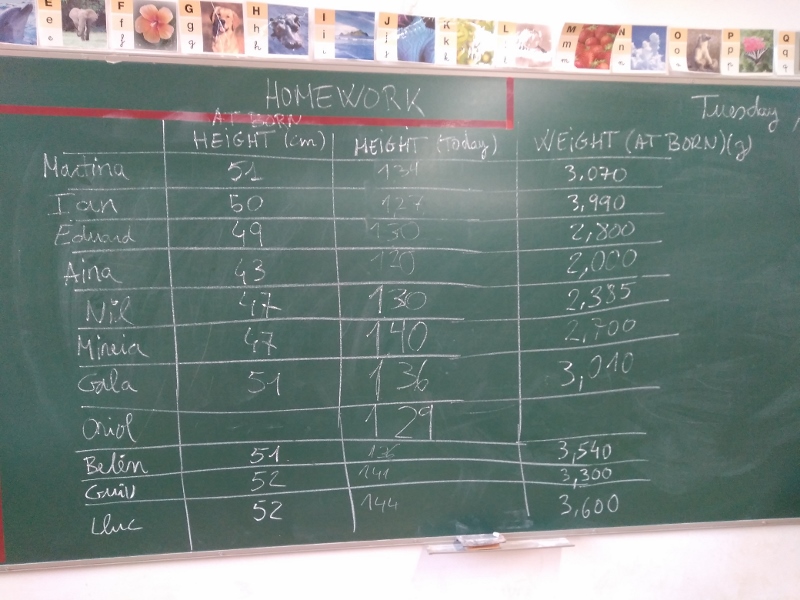 E e F f G g H h I i J j K k L l M m N n O o P p Q q
HOMEWORK
Tuesday,
AT BORN HEIGHT (cm) HEIGHT (Today) WEIGHT (AT BORN)(g)
Martina 51 134 3,070
Ian 50 127 3,990
Eduard 49 130 2,800
Aina 43 120 2,000
Nil 47 130 2,335
Mireia 47 140 2,700
Gala 51 136 3,010
Oriol 129
Belén 51 3,540
Guiu 52 141 3,300
Lluc 52 144 3,600